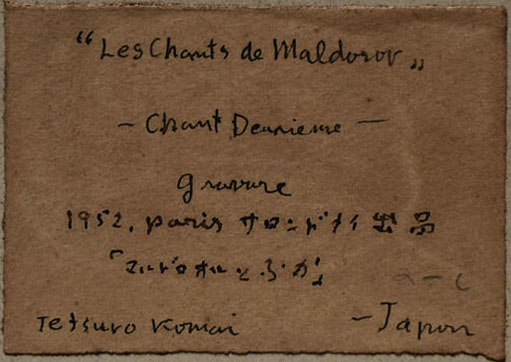 “Les Chants de Maldoror„
— Chant Deuxieme —
gravure
1952, Paris サロンドメイ出品
Tetsuro Komai — Japon